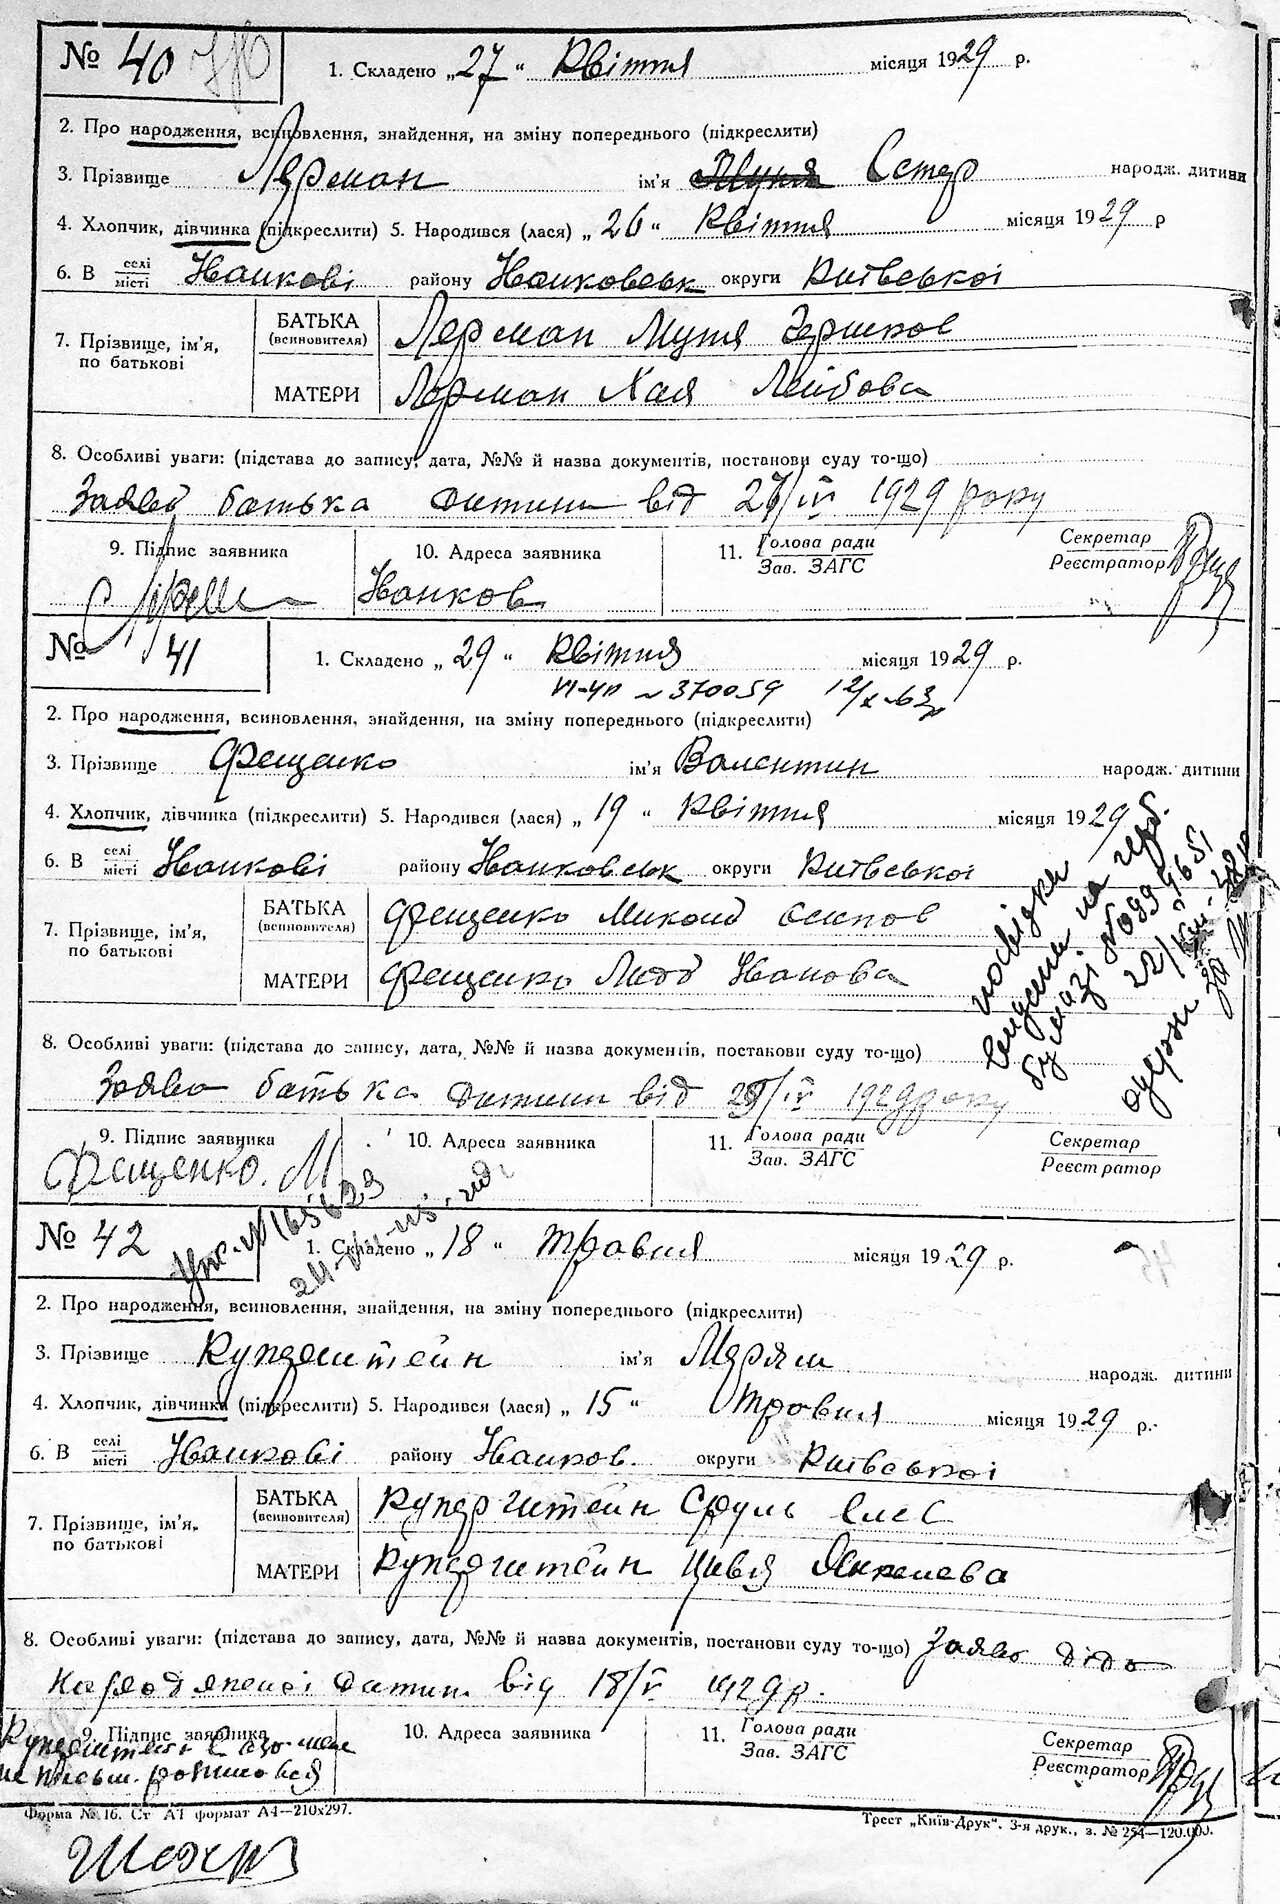 № 40
1. Складено „27“ Квітня місяця 1929 р.
2. Про народження, всиновлення, знайдення, на зміну попереднього (підкреслити)
3. Прізвище Лерман ім'я Естер народж. дитини
4. Хлопчик, дівчинка (підкреслити) 5. Народився (лася) „26“ Квітня місяця 1929 р
6. В селі місті Іванкові району Іванковськ округи Київської
7. Прізвище, ім'я, по батькові
БАТЬКА (всиновителя) Лерман Муня Гершков
МАТЕРИ Лерман Хая Лейбова
8. Особливі уваги: (підстава до запису, дата, №№ й назва документів, постанови суду то-що)
Заява батька дитини від 27/IV 1929 року
9. Підпис заявника 10. Адреса заявника 11. Голова ради Зав. ЗАГС Секретар Реєстратор
Іванков
№ 41
1. Складено „29“ Квітня місяця 1929 р.
№370059 12/X-63р
2. Про народження, всиновлення, знайдення, на зміну попереднього (підкреслити)
3. Прізвище Фещенко ім'я Валентин народж. дитини
4. Хлопчик, дівчинка (підкреслити) 5. Народився (лася) „19“ Квітня місяця 1929
6. В селі місті Іванкові району Іванковськ округи Київської
7. Прізвище, ім'я, по батькові
БАТЬКА (всиновителя) Фещенко Микола
МАТЕРИ Фещенко Лида Іванова
8. Особливі уваги: (підстава до запису, дата, №№ й назва документів, постанови суду то-що)
Заява батька дитини від 29/IV 1929 року
9. Підпис заявника 10. Адреса заявника 11. Голова ради Зав. ЗАГС Секретар Реєстратор
Фещенко. М
№ 42
№165623
1. Складено „18“ травня місяця 1929 р.
2. Про народження, всиновлення, знайдення, на зміну попереднього (підкреслити)
3. Прізвище Куперштейн ім'я Мерям народж. дитини
4. Хлопчик, дівчинка (підкреслити) 5. Народився (лася) „15“ травня місяця 1929 р.
6. В селі місті Іванкові району Іванков. округи Київської
7. Прізвище, ім'я, по батькові
БАТЬКА (всиновителя) Куперштейн Сруль
МАТЕРИ Куперштейн Цивя Янкелева
8. Особливі уваги: (підстава до запису, дата, №№ й назва документів, постанови суду то-що) Заява діда
народженої дитини від 18/V 1929 р.
9. Підпис заявника 10. Адреса заявника 11. Голова ради Зав. ЗАГС Секретар Реєстратор
Куперштейн
Форма № 16. Ст А4 формат А4—210х297.
Трест „Київ-Друк“. 3-я друк., з. № 254—120.000.